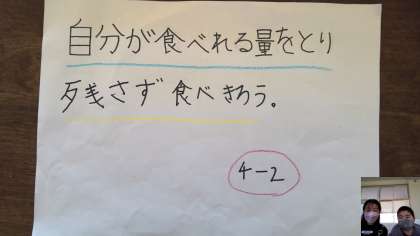 自分が食べれる量をとり
残さず食べきろう。
4-2